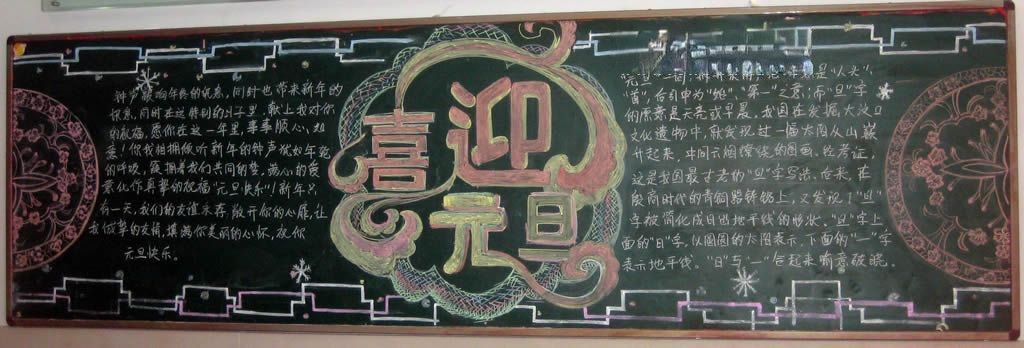 钟声敲响年终的讯息，同时也带来新年的
讯息，同时在这特别的日子里，献上我对你
的祝福，愿你在这一年里，事事顺心，如
意！你我相拥倾听新年的钟声犹如年轮
的呼吸，簇拥着我们共同的梦，满心的爱
意化作真挚的祝福"元旦快乐"！新年只
有一天，我们的友谊永存，敞开你的心扉，让
我做挚的友情，填满你美丽的心怀，祝你
元旦快乐。
喜迎
元旦
"元旦"一词
是"人头"，
"首"，后引申为"始"、"第一"之意；而"旦"字
的原意是天亮或早晨。我国在发掘大汶口
文化遗物中，就发现过一幅太阳从山巅
升起来，中间云烟缭绕的图画。经考证，
这是我国最古老的"旦"字写法。后来，在
殷商时代的青铜器铸铭上，又发现了"旦"
字被简化成日出地平线的形状。"旦"字上
面的"日"字，似圆圆的太阳表示，下面的"一"字
表示地平线。"日"与"一"合起来喻意破晓。